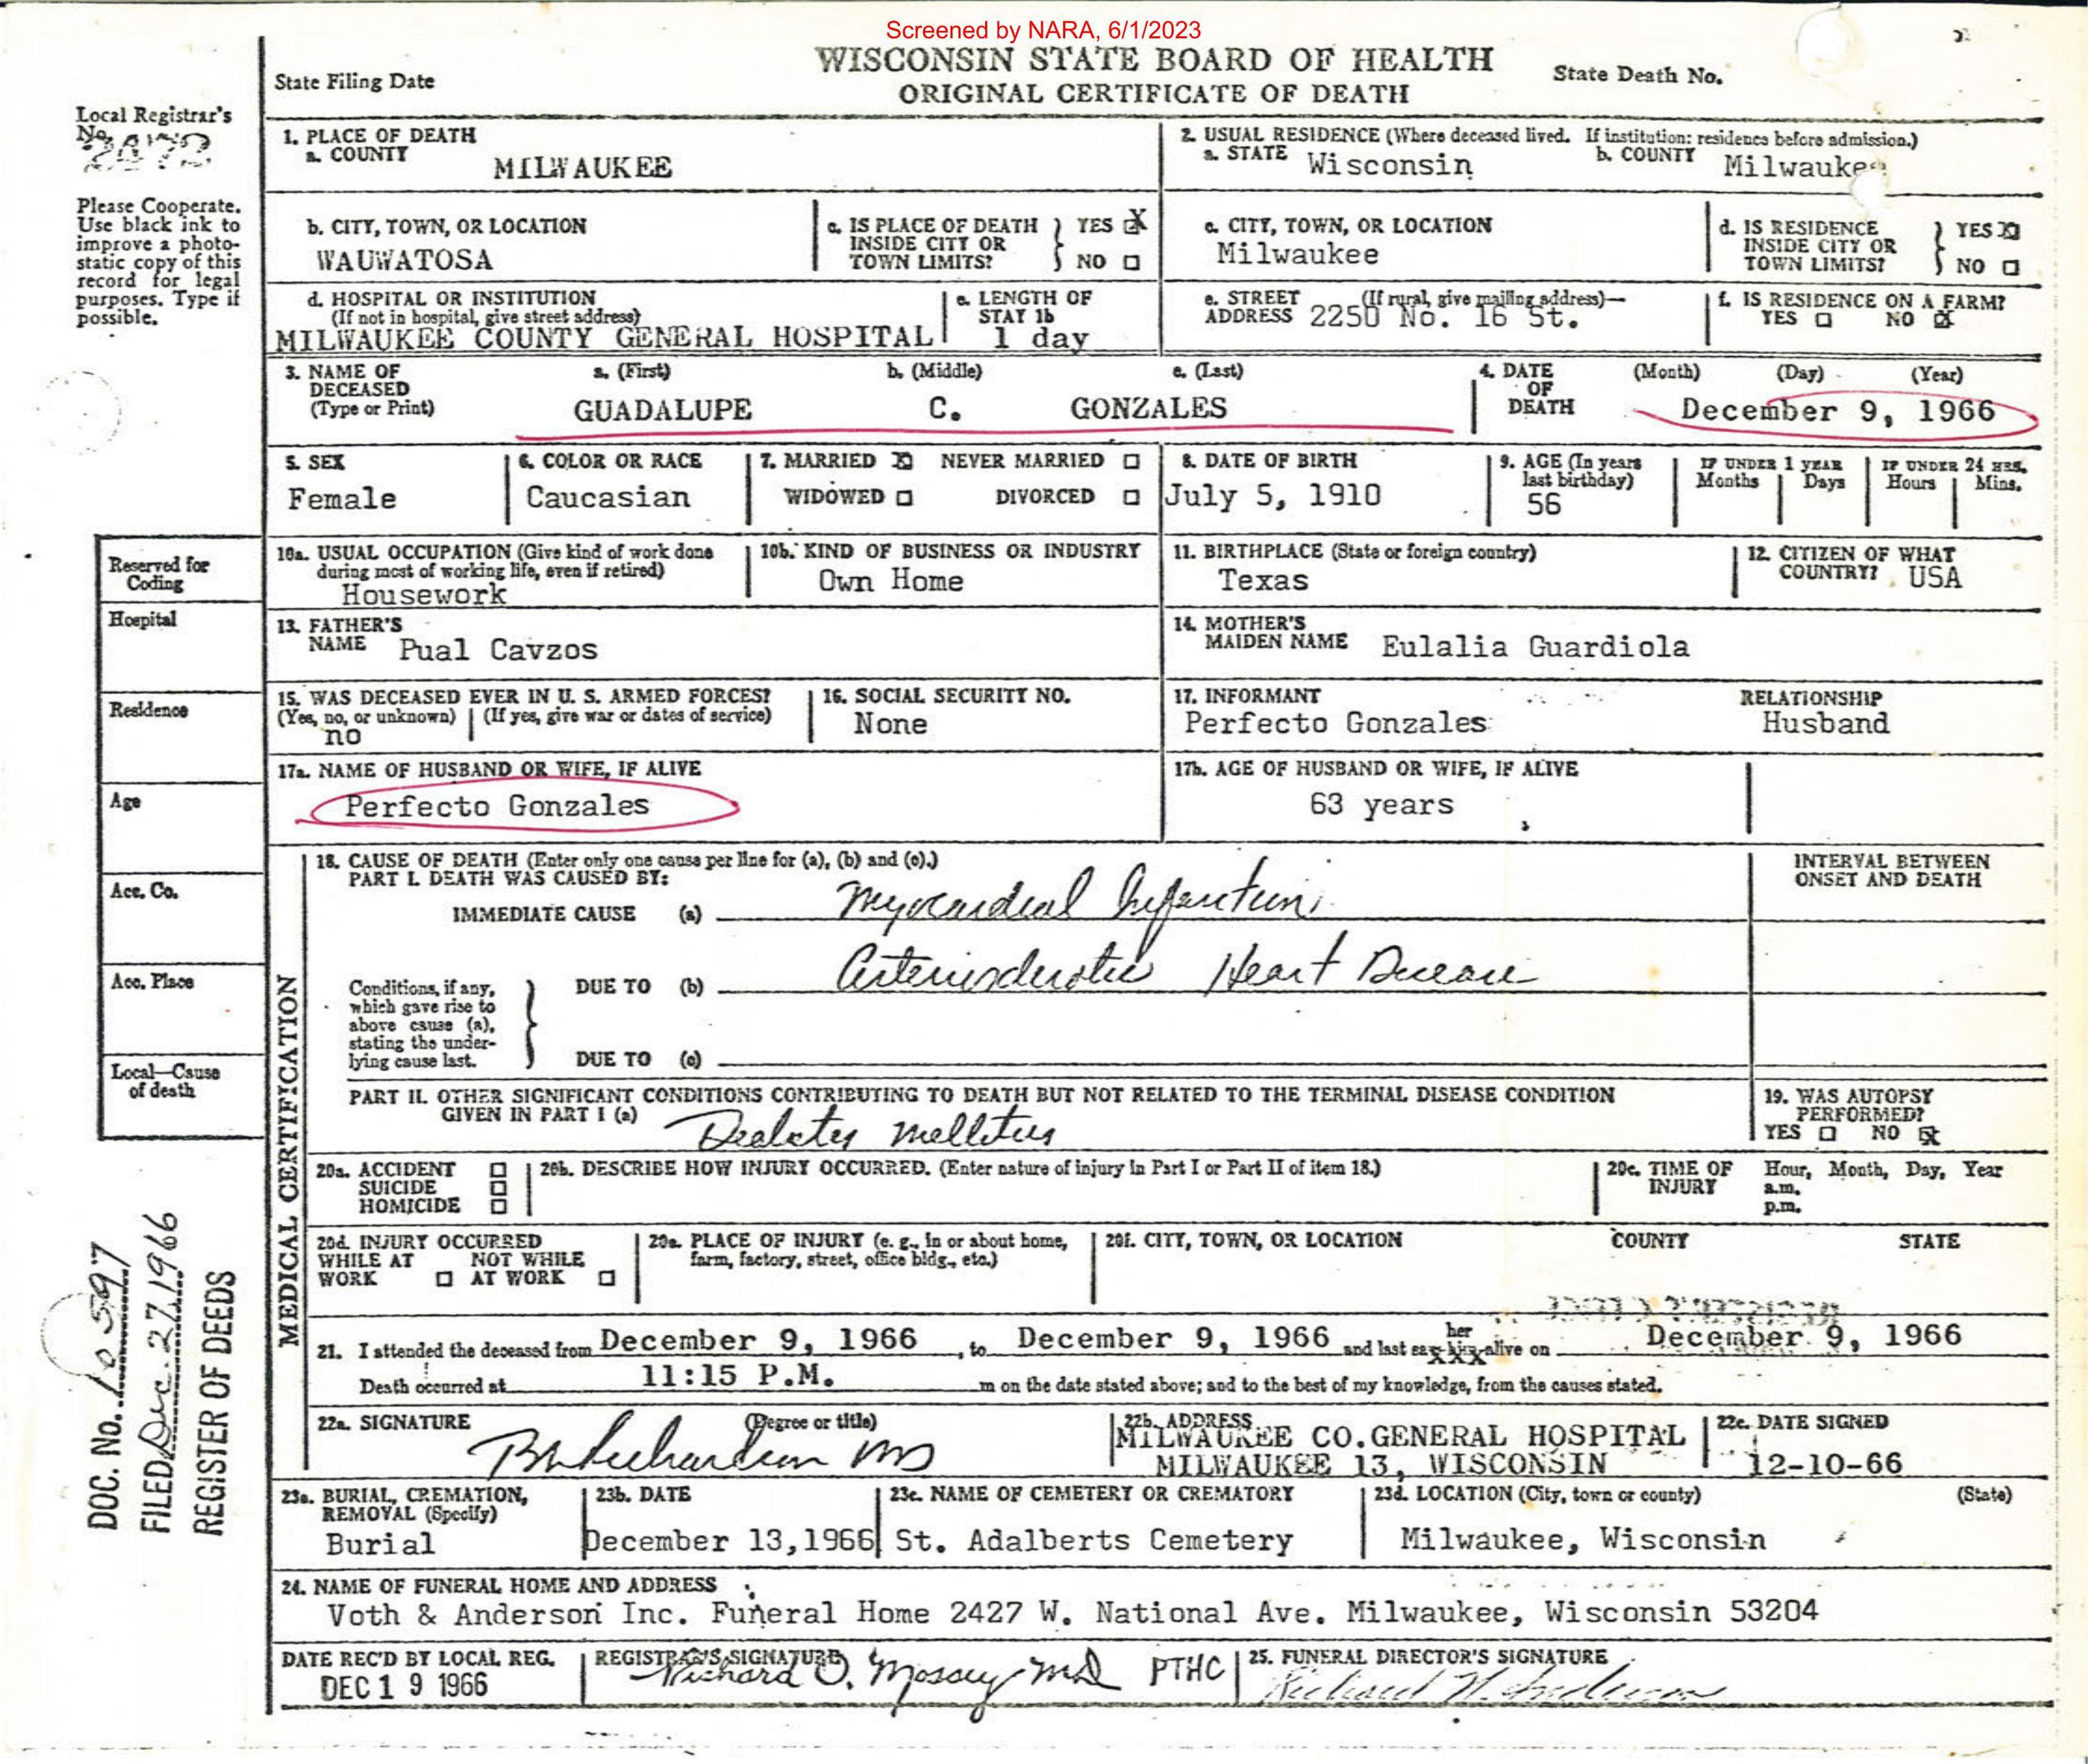 Screened by NARA, 6/1/2023
WISCONSIN STATE BOARD OF HEALTH
ORIGINAL CERTIFICATE OF DEATH
State Filing Date
State Death No.
Local Registrar's
No.
Please Cooperate.
Use black ink to
improve a photo-
static copy of this
record for legal
purposes. Type if
possible.
1. PLACE OF DEATH
a. COUNTY
MILWAUKEE
2. USUAL RESIDENCE (Where deceased lived. If institution: residence before admission.)
a. STATE Wisconsin b. COUNTY Milwaukee
b. CITY, TOWN, OR LOCATION
WAUWATOSA
c. IS PLACE OF DEATH
INSIDE CITY OR
TOWN LIMITS?
YES X
NO
c. CITY, TOWN, OR LOCATION
Milwaukee
d. IS RESIDENCE
INSIDE CITY OR
TOWN LIMITS?
YES X
NO
d. HOSPITAL OR INSTITUTION
(If not in hospital, give street address)
MILWAUKEE COUNTY GENERAL HOSPITAL
e. LENGTH OF
STAY 1b
1 day
e. STREET (If rural, give mailing address)
ADDRESS 2250 No. 16 St.
f. IS RESIDENCE ON A FARM?
YES NO X
3. NAME OF
DECEASED
(Type or Print)
a. (First) b. (Middle) c. (Last)
GUADALUPE C. GONZALES
4. DATE
OF
DEATH
(Month) (Day) (Year)
December 9, 1966
5. SEX
Female
6. COLOR OR RACE
Caucasian
7. MARRIED X NEVER MARRIED
WIDOWED DIVORCED
8. DATE OF BIRTH
July 5, 1910
9. AGE (In years
last birthday)
56
IF UNDER 1 YEAR
Months Days
IF UNDER 24 HRS.
Hours Mins.
Reserved for
Coding
Hospital
Residence
Age
Acc. Co.
Acc. Place
Local—Cause
of death
10a. USUAL OCCUPATION (Give kind of work done
during most of working life, even if retired)
Housework
10b. KIND OF BUSINESS OR INDUSTRY
Own Home
11. BIRTHPLACE (State or foreign country)
Texas
12. CITIZEN OF WHAT
COUNTRY? USA
13. FATHER'S
NAME Pual Cavzos
14. MOTHER'S
MAIDEN NAME Eulalia Guardiola
15. WAS DECEASED EVER IN U. S. ARMED FORCES?
(Yes, no, or unknown) (If yes, give war or dates of service)
no
16. SOCIAL SECURITY NO.
None
17. INFORMANT RELATIONSHIP
Perfecto Gonzales Husband
17a. NAME OF HUSBAND OR WIFE, IF ALIVE
Perfecto Gonzales
17b. AGE OF HUSBAND OR WIFE, IF ALIVE
63 years
MEDICAL CERTIFICATION
18. CAUSE OF DEATH (Enter only one cause per line for (a), (b) and (c).)
PART I. DEATH WAS CAUSED BY:
IMMEDIATE CAUSE (a) Myocardial Infarction
INTERVAL BETWEEN
ONSET AND DEATH
Conditions, if any,
which gave rise to
above cause (a),
stating the under-
lying cause last.
DUE TO (b) Arteriosclerotic Heart Disease
DUE TO (c)
PART II. OTHER SIGNIFICANT CONDITIONS CONTRIBUTING TO DEATH BUT NOT RELATED TO THE TERMINAL DISEASE CONDITION
GIVEN IN PART I (a) Diabetes Mellitus
19. WAS AUTOPSY
PERFORMED?
YES NO X
20a. ACCIDENT
SUICIDE
HOMICIDE
20b. DESCRIBE HOW INJURY OCCURRED. (Enter nature of injury in Part I or Part II of item 18.)
20c. TIME OF
INJURY
Hour, Month, Day, Year
a.m.
p.m.
20d. INJURY OCCURRED
WHILE AT NOT WHILE
WORK AT WORK
20e. PLACE OF INJURY (e. g., in or about home,
farm, factory, street, office bldg., etc.)
20f. CITY, TOWN, OR LOCATION COUNTY STATE
21. I attended the deceased from December 9, 1966, to December 9, 1966 and last saw her alive on December 9, 1966
Death occurred at 11:15 P.M. m on the date stated above; and to the best of my knowledge, from the causes stated.
22a. SIGNATURE (Degree or title)
Richardson MD
22b. ADDRESS
MILWAUKEE CO.GENERAL HOSPITAL
MILWAUKEE 13, WISCONSIN
22c. DATE SIGNED
12-10-66
23a. BURIAL, CREMATION,
REMOVAL (Specify)
Burial
23b. DATE
December 13,1966
23c. NAME OF CEMETERY OR CREMATORY
St. Adalberts Cemetery
23d. LOCATION (City, town or county) (State)
Milwaukee, Wisconsin
24. NAME OF FUNERAL HOME AND ADDRESS
Voth & Anderson Inc. Funeral Home 2427 W. National Ave. Milwaukee, Wisconsin 53204
DATE REC'D BY LOCAL REG.
DEC 19 1966
REGISTRAR'S SIGNATURE
Richard O. MD PTHC
25. FUNERAL DIRECTOR'S SIGNATURE
Richard Anderson
DOC. No. 10597
FILED Dec. 27 1966
REGISTER OF DEEDS